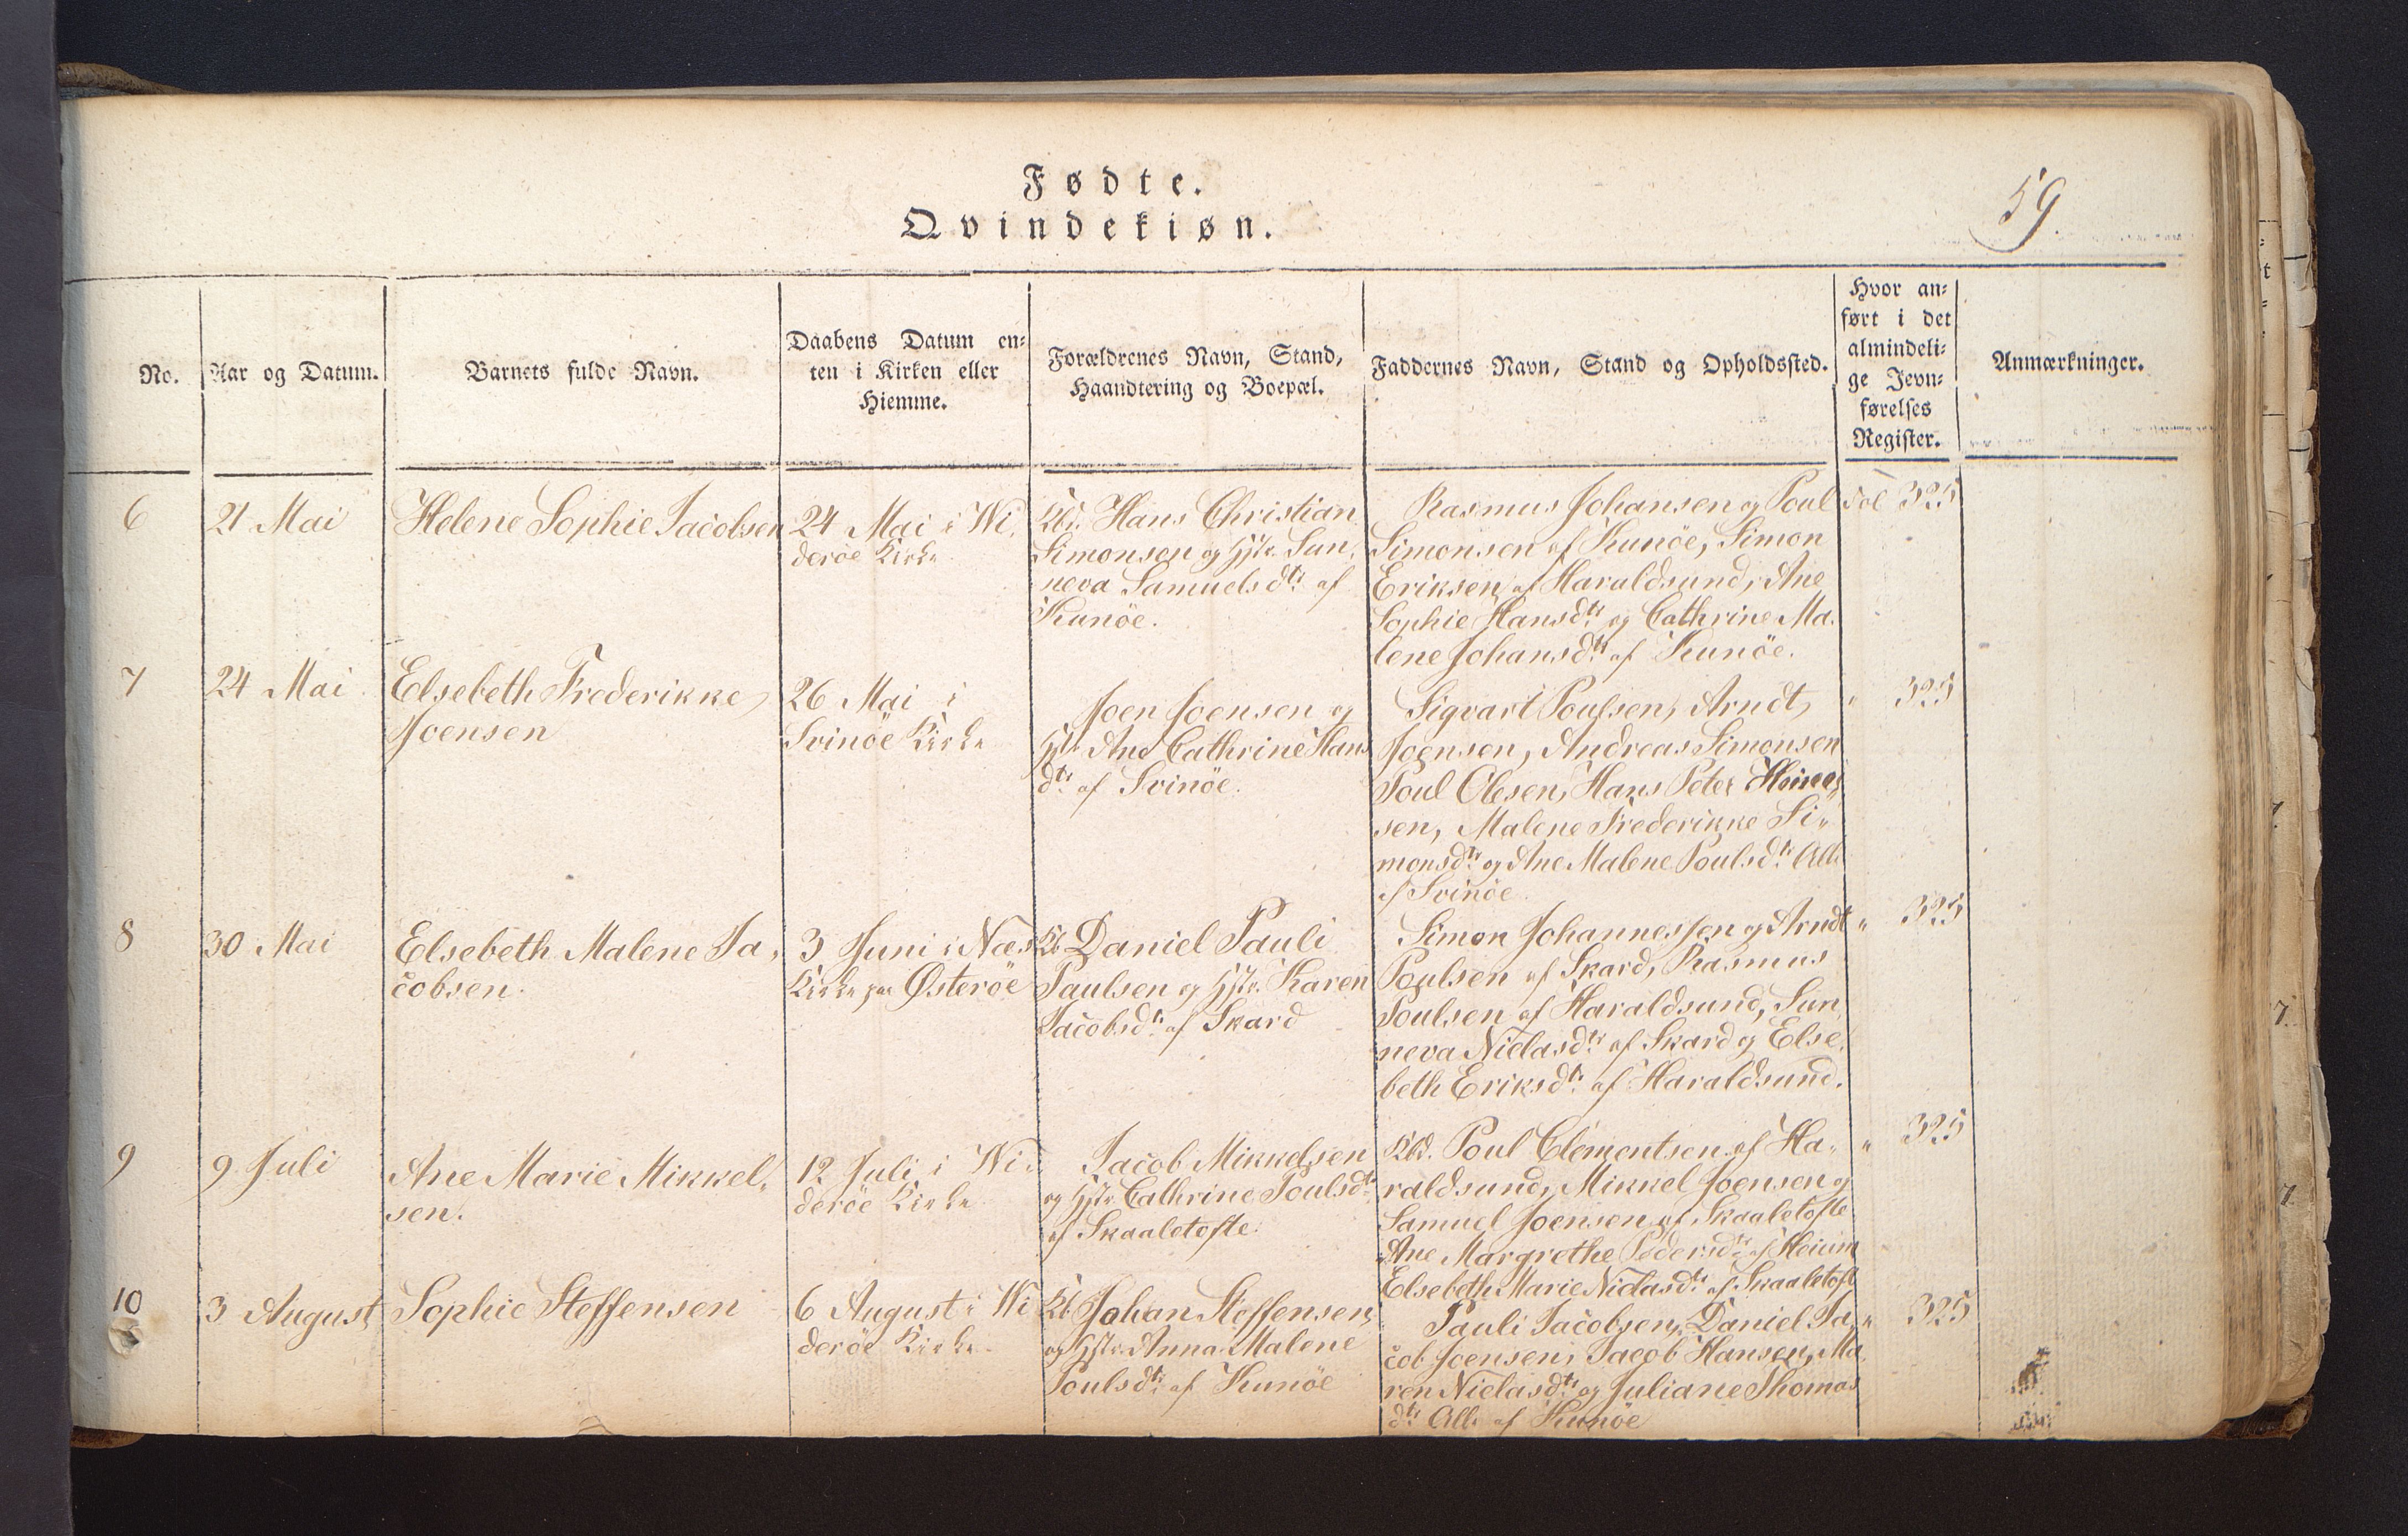 Fødte.
Qvindekiøn.
59.
No.
Aar og Datum.
Barnets fulde Navn.
Daabens Datum en-
ten i Kirken eller
Hiemme.
Forældrenes Navn, Stand,
Haandtering og Boepæl.
Faddernes Navn, Stand og Opholdssted.
Hvor an-
ført i det
almindeli-
ge Jevn-
førelses
Register.
Anmærkninger.
6
21 Mai
Helene Sophie Jacobsen
24 Mai i Wi,
deröe Kirke
Kbd. Hans Christian
Simonsen og Hstr. Sun,
neva Samuelsdtr af
Kunöe.
Rasmus Johansen og Poul
Simonsen af Kunöe, Simon
Eriksen af Haraldsund, Ane
Sophie Hansdtr og Cathrine Ma,
lene Johansdtr af Kunöe.
Fol 325
7
24 Mai
Elsebeth Frederikke
Joensen
26 Mai i
Svinöe Kirke
Joen Joensen og
Hstr Ane Cathrine Hans
dtr af Svinöe.
Sigvart Poulsen, Arndt
Joensen, Andreas Simonsen
Poul Olesen, Hans Peter Heine,
sen, Malene Frederikke Si-
monsdtr og Ane Malene Poulsdtr Alle
af Svinöe
" 325
8
30 Mai
Elsebeth Malene Ja,
cobsen.
3 Juni i Næs
Kirke paa Østeröe
Kb Daniel Pauli
Paulsen og Hstr. Karen
Jacobsdtr af Skard
Simon Johannessen og Arndt
Poulsen af Skard, Rasmus
Poulsen af Haraldsund, Sun,
neva Nielasdtr af Skard og Else,
beth Eriksdtr af Haraldsund.
" 325
9
9 Juli
Ane Marie Mikkel,
sen.
12 Juli i Wi,
deröe Kirke
Jacob Mikkelsen
og Hstr Cathrine Poulsdtr
af Skaaletofte.
Kbd. Poul Clementsen af Ha,
raldsund, Mikkel Joensen og
Samuel Joensen af Skaaletofte
Ane Margrethe Pedersdtr af
Elsebeth Marie Nielasdtr af Skaaletoft
" 325
10
3 August
Sophie Steffensen
6 August i Wi
deröe Kirke
Kb Johan Steffensen
og Hstr. Anna Malene
Poulsdtr af Kunöe
Pauli Jacobsen, Daniel Ja,
cob Joensen, Jacob Hansen, Ma,
ren Nielasdtr og Juliane Thomas
dtr Alle af Kunöe
" 325